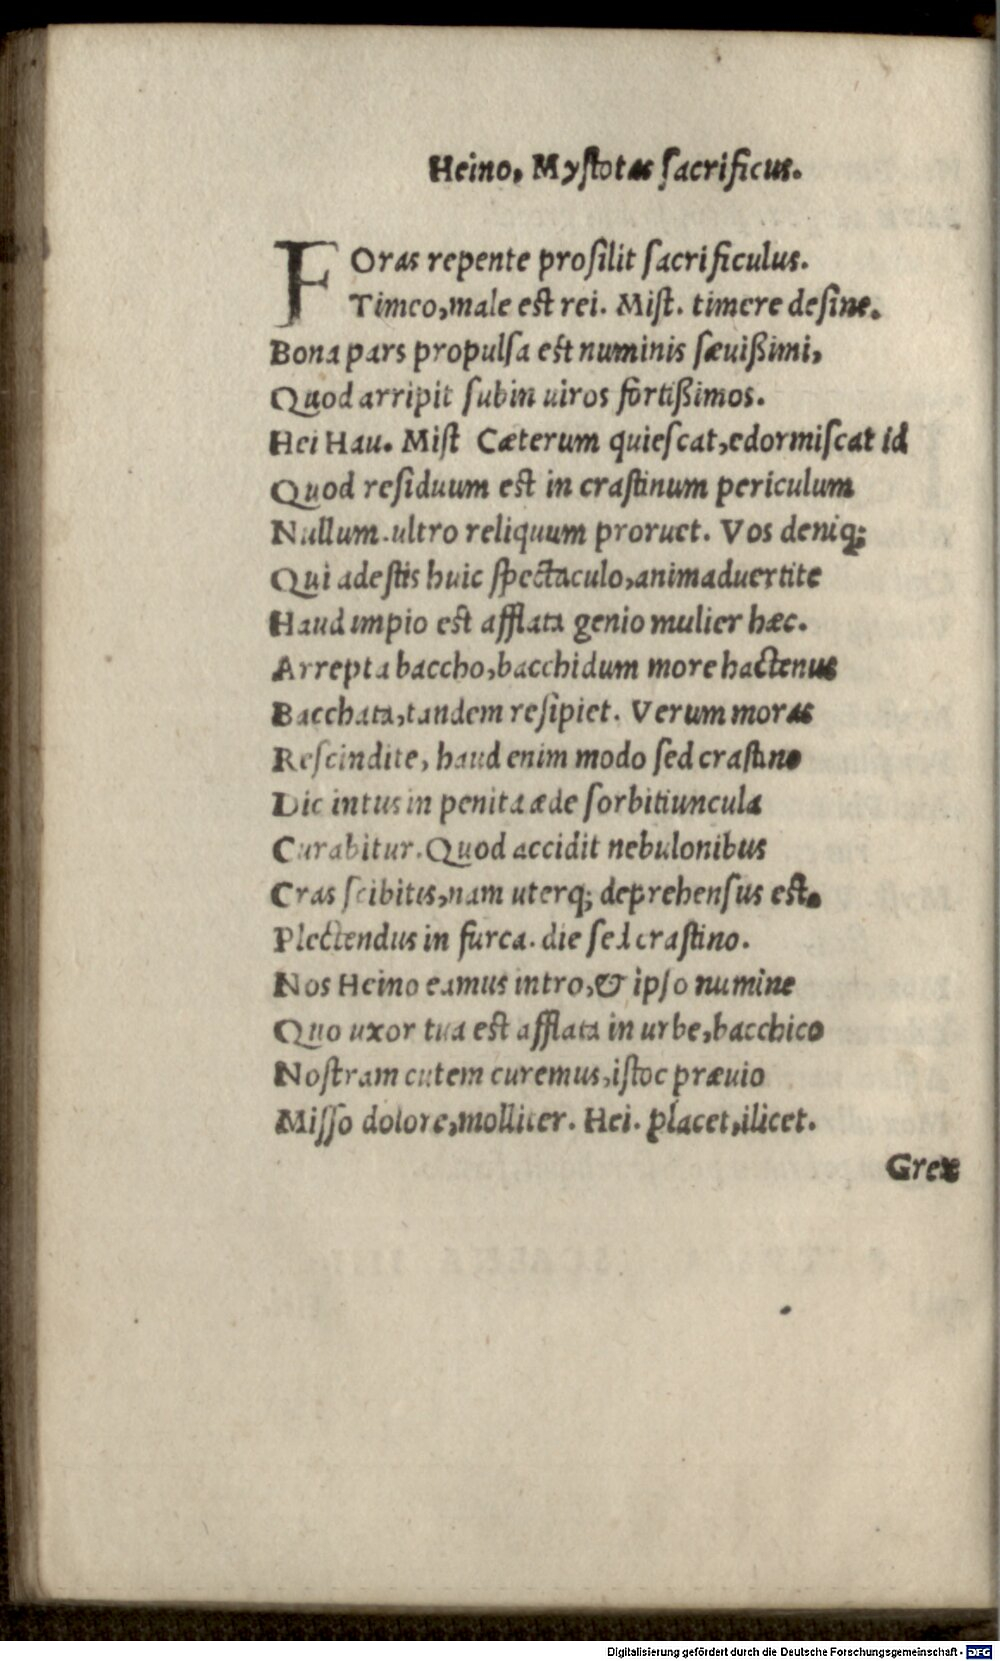 Heino, Mystotas sacrificus.
FOras repente prosilit sacrificulus.
Timeo, male est rei. Mist. timere desine.
Bona pars propulsa est numinis sæuißimi,
Quod arripit subin uiros fortißimos.
Hei Hau. Mist Cæterum quiescat, edormiscat id
Quod residuum est in crastinum periculum
Nullum. ultro reliquum proruet. Vos deniq;
Qui adestis huic spectaculo, animaduertite
Haud impio est afflata genio mulier hæc.
Arrepta baccho, bacchidum more hactenus
Bacchata, tandem resipiet. Verum moras
Rescindite, haud enim modo sed crastino
Dic intus in penita æde sorbitiuncula
Curabitur. Quod accidit nebulonibus
Cras scibitis, nam uterq; deprehensus est.
Plectendus in furca. die sed crastino.
Nos Heino eamus intro, & ipso numine
Quo uxor tua est afflata in urbe, bacchico
Nostram cutem curemus, istoc præuio
Misso dolore, molliter. Hei. placet, ilicet.
Grex
Digitalisierung gefördert durch die Deutsche Forschungsgemeinschaft - DFG